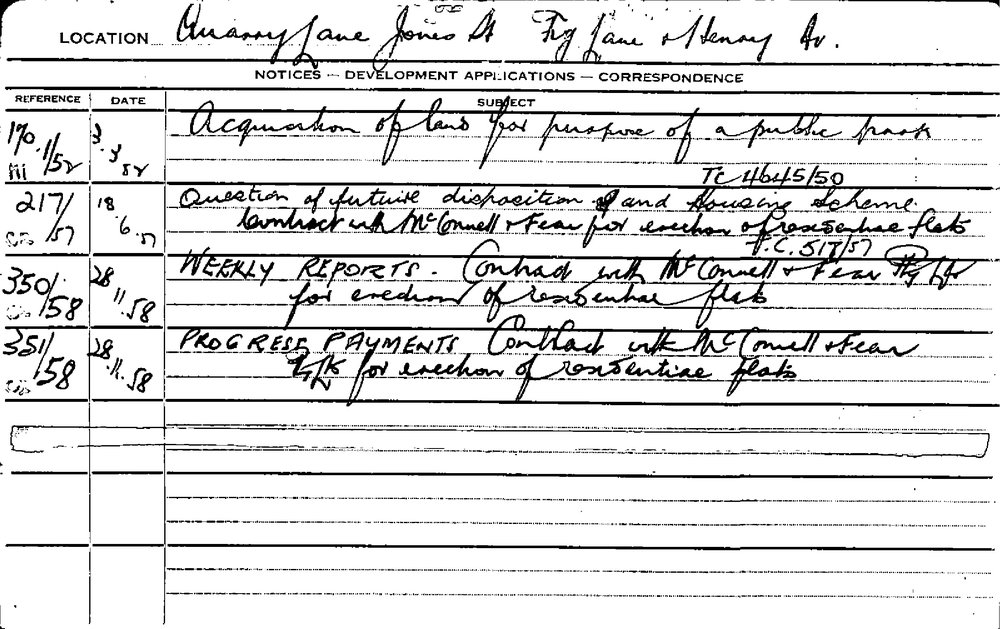 LOCATION Quarry Lane Jones St Fig Lane & Henry Av.
NOTICES — DEVELOPMENT APPLICATIONS — CORRESPONDENCE
REFERENCE DATE SUBJECT
170/52 3.3.52 Acquisition of land for purpose of a public park
TC 4645/50
217/57 18.6.57 Question of future disposition of and Housing Scheme.
Contract with McConnell & Fear for erection of residential flats
T.C. 517/57
350/58 28.11.58 WEEKLY REPORTS. Contract with McConnell & Fear Pty Ltd
for erection of residential flats
351/58 28.11.58 PROGRESS PAYMENTS Contract with McConnell & Fear
P/L for erection of residential flats